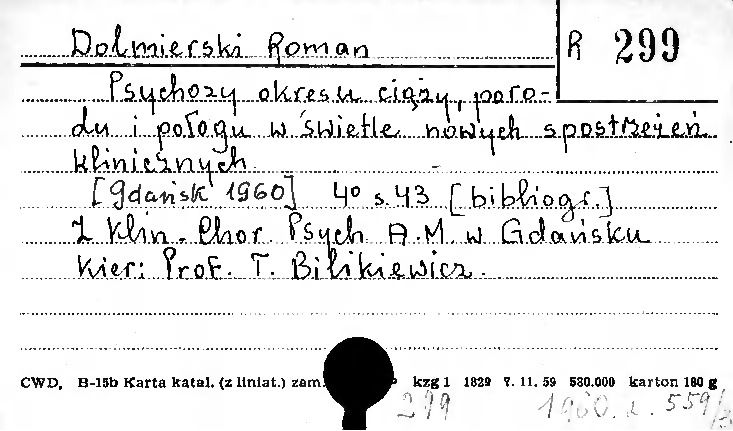 Dołmierski Roman
R 299
Psychozy okresu ciąży, poro-
du i połogu w świetle nowych spostrzeżeń
klinicznych
[Gdańsk 1960] 4° s. 43 [bibliogr.]
Z Klin. Chor. Psych A.M. w Gdańsku
Kier: Prof. T. Bilikiewicz.
CWD, B-15b Karta katal. (z liniat.) zam. kzg 1 1829 7. 11. 59 580.000 karton 180 g
299 1960. 559/3